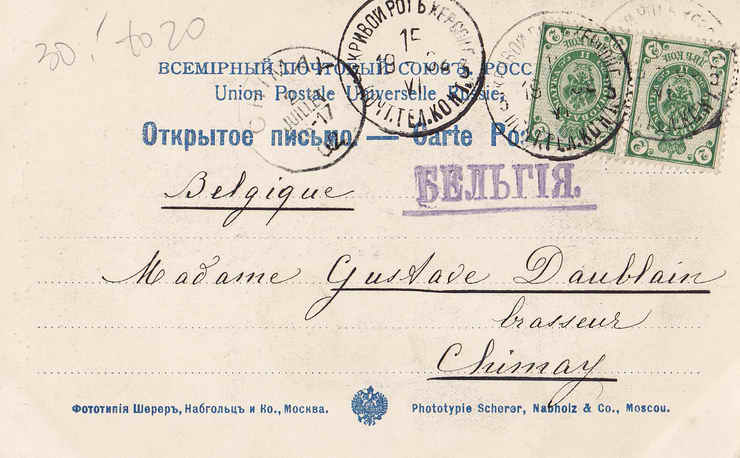 30! to 20
ВСЕМІРНЫЙ ПОЧТОВЫЙ СОЮЗЪ. РОСС
Union Postale Universelle Russie.
Открытое письмо. — Carte Po
КРИВОЙ РОГЪ ХЕРСОН
15
19
VI
ПОЧТ.ТЕЛ.КОНТ.
JUILLET
-17
ДВѢ КОП.
2
2
БЕЛЬГІЯ.
Belgique
Madame Gustave Daublain
brasseur
Chimay
Фототипія Шереръ, Набгольцъ и Ко., Москва.
Phototypie Scherer, Nabholz & Co., Moscou.